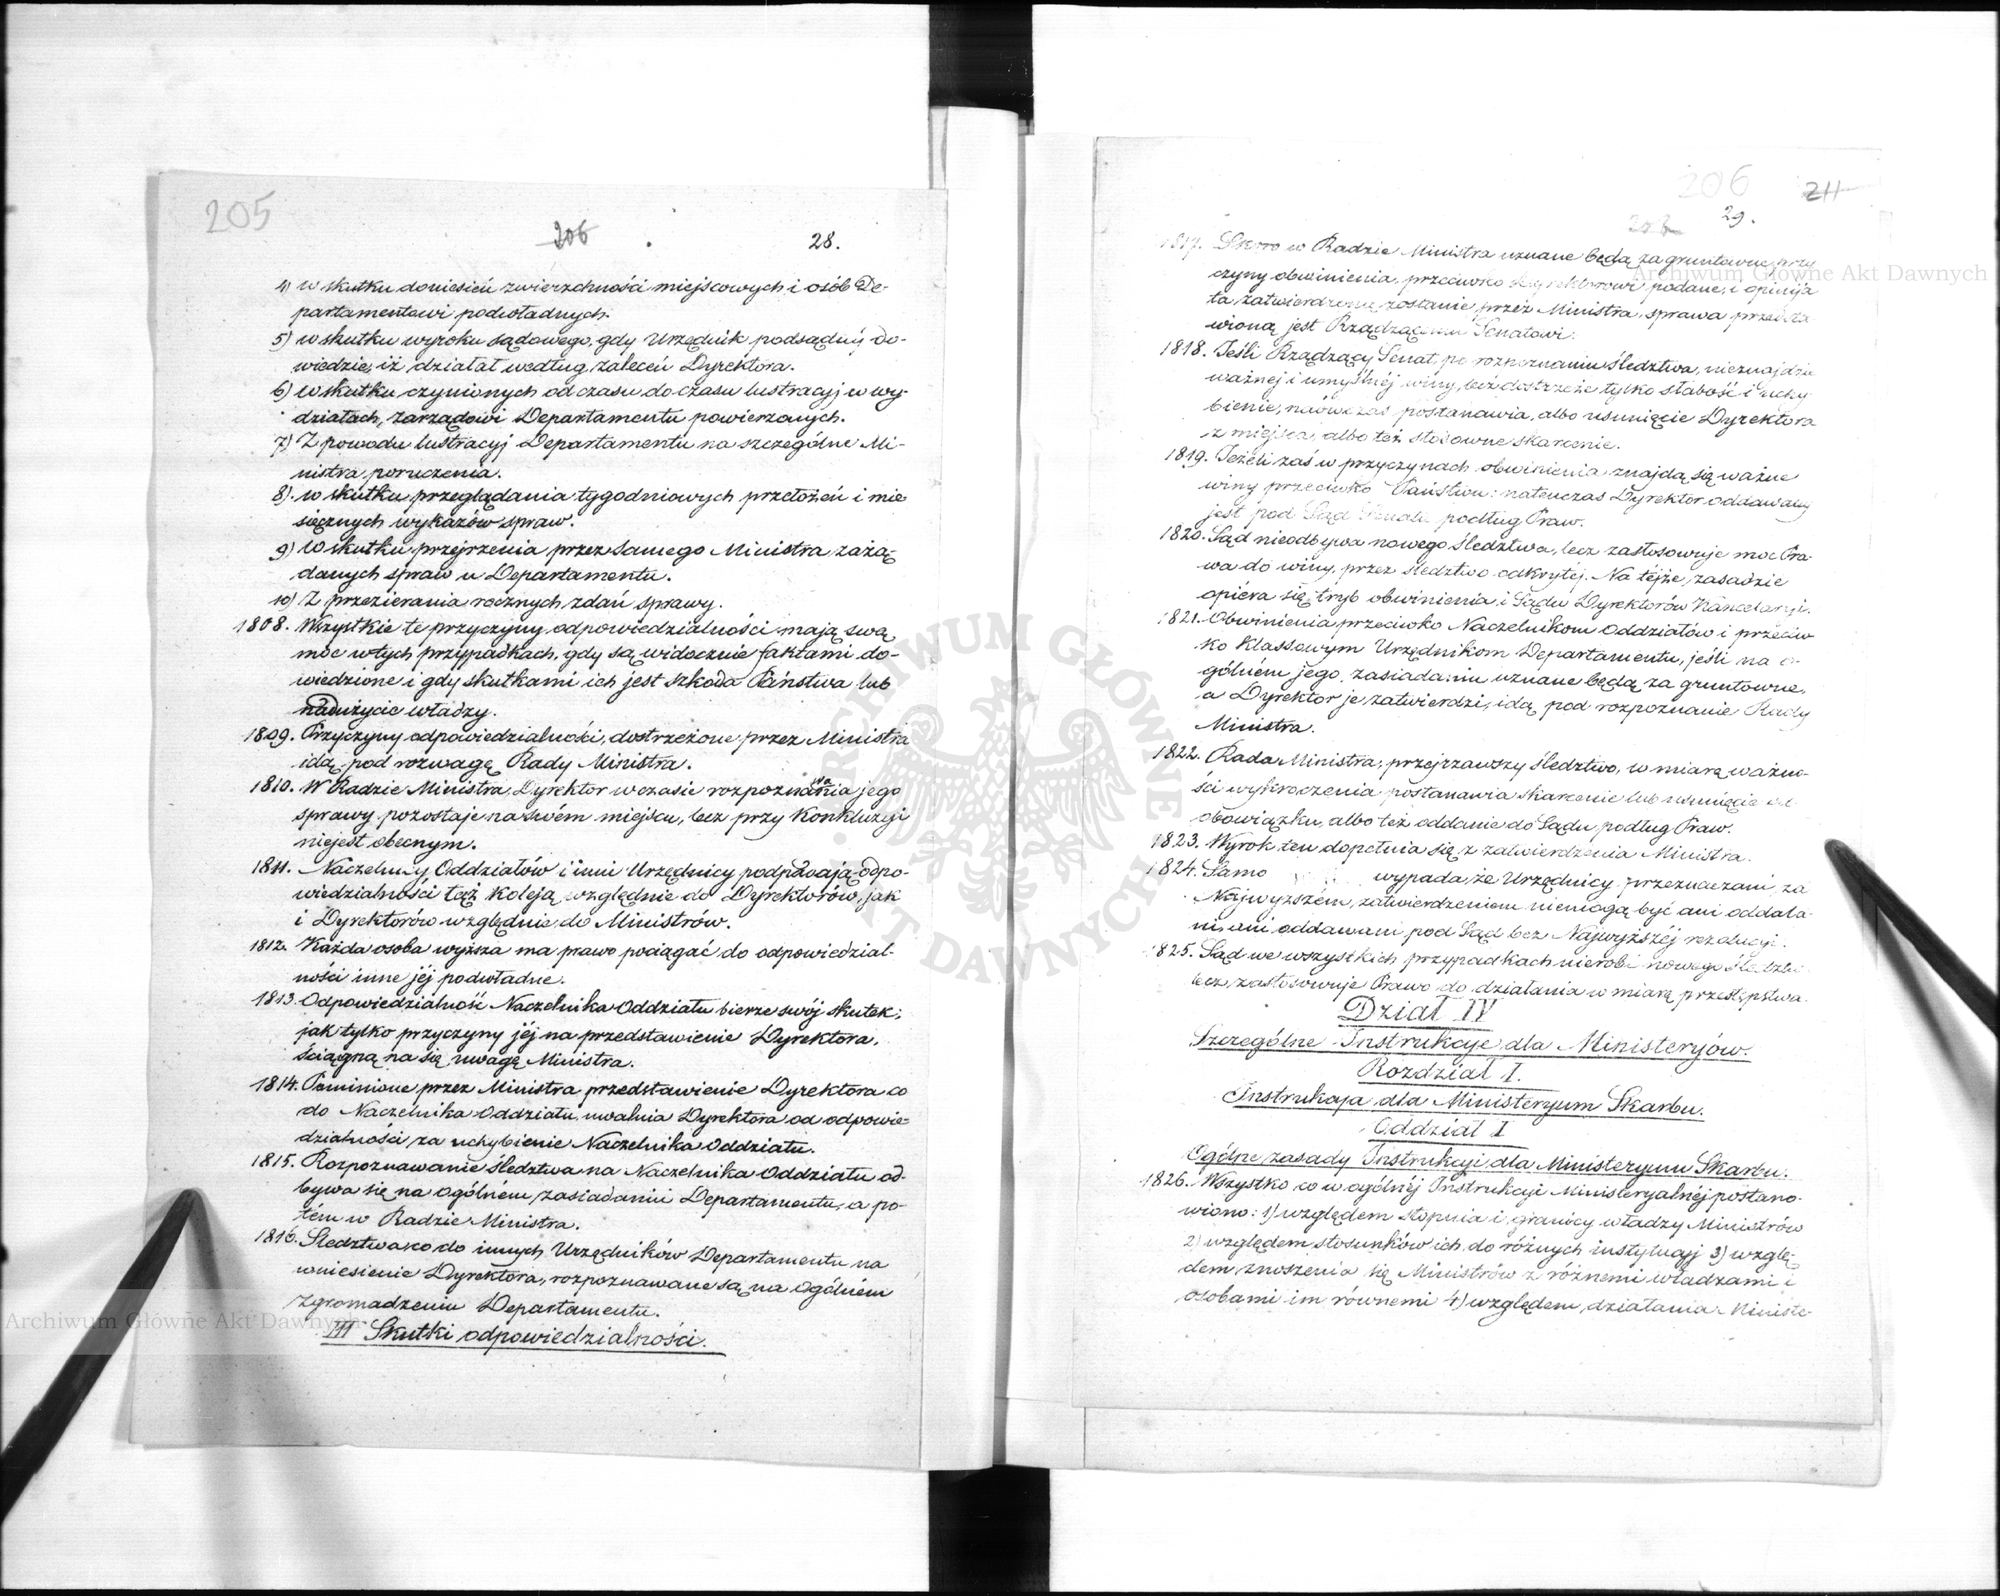 205
206
28.
4) w skutku doniesień zwierzchności miejscowych i osób De-
partamentowi podwładnych.
5) w skutku wyroku sądowego, gdy Urzędnik podsądny do-
wiedzie, iż działał według zaleceń Dyrektora.
6) w skutku czynionych od czasu do czasu lustracyj w wy-
działach, zarządowi Departamentu powierzonych.
7) Z powodu lustracyj Departamentu na szczególne Mi-
nistra poruczenia.
8) w skutku przeglądania tygodniowych przełożeń i mie-
sięcznych wykazów spraw.
9) w skutku przejrzenia przez samego Ministra zażą-
danych spraw w Departamentu.
10) Z przezierania rocznych zdań sprawy.
1808. Wszystkie te przyczyny odpowiedzialności mają swą
moc w tych przypadkach, gdy są widocznie faktami do-
wiedzione i gdy skutkami ich jest szkoda Państwa lub
nadużycie władzy.
1809. Przyczyny odpowiedzialności, dostrzeżone przez Ministra
idą pod rozwagę Rady Ministra.
1810. W Radzie Ministra, Dyrektor w czasie rozpoznawania jego
sprawy pozostaje na swém miejscu, lecz przy Konkluzyi
niejest obecnym.
1811. Naczelnicy Oddziałów i inni Urzędnicy podpadają odpo-
wiedzialności tąż koleją względnie do Dyrektorów, jak
i Dyrektorów względnie do Ministrów.
1812. Każda osoba wyższa ma prawo pociągać do odpowiedzial-
ności inne jéj podwładne.
1813. Odpowiedzialność Naczelnika Oddziału bierze swój skutek;
jak tylko przyczyny jéj na przedstawienie Dyrektora,
ściągną na się uwagę Ministra.
1814. Pominione przez Ministra przedstawienie Dyrektora co
do Naczelnika Oddziału, uwalnia Dyrektora od odpowie-
dzialności za uchybienie Naczelnika Oddziału.
1815. Rozpoznawanie śledztwa na Naczelnika Oddziału od-
bywa się na ogólném zasiadaniu Departamentu, a po-
tém w Radzie Ministra.
1816. Śledztwa co do innych Urzędników Departamentu na
wniesienie Dyrektora, rozpoznawane są na ogólném
zgromadzeniu Departamentu.
III Skutki odpowiedzialności.
206
211
29.
1817. Skoro w Radzie Ministra uznane będą za gruntowne przy
czyny obwinienia, przeciwko Dyrektorowi podane, i opinija
ta, zatwierdzoną zostanie przez Ministra, sprawa przedsta
wioną jest Rządzącemu Senatowi.
1818. Jeśli Rządzący Senat, po rozpoznaniu śledztwa, nieznajdzie
ważnej i umyślnéj winy, lecz dostrzeże tylko słabość i uchy-
bienie, naówczas postanawia, albo usunięcie Dyrektora
z miejsca, albo też stosowne skarcenie.
1819. Jeżeli zaś w przyczynach obwinienia znajdą się ważne
winy przeciwko Państwu: natenczas Dyrektor oddawany
jest pod Sąd Senatu podług Praw.
1820. Sąd nieodbywa nowego śledztwa, lecz zastosowuje moc Pra-
wa do winy, przez śledztwo odkrytéj. Na téjże zasadzie
opiéra się tryb obwinienia i Sądu Dyrektorów Kancelaryi.
1821. Obwinienia przeciwko Naczelnikom Oddziałów i przeciw-
ko Klassowym Urzędnikom Departamentu, jeśli na o-
gólném jego zasiadaniu uznane będą za gruntowne,
a Dyrektor je zatwierdzi, idą pod rozpoznanie Rady
Ministra.
1822. Rada Ministra, przejrzawszy śledztwo, w miarę ważno-
ści wykroczenia postanawia skarcenie lub usunięcie od
obowiązku, albo też oddanie do Sądu podług Praw.
1823. Wyrok ten dopełnia się z zatwierdzenia Ministra.
1824. Samo wypada, że Urzędnicy przeznaczani za
Najwyższém zatwierdzeniem niemogą być ani oddala-
ni, ani oddawani pod Sąd bez Najwyższéj rezolucyi.
1825. Sąd we wszystkich przypadkach nierobi nowego śledztwa
lecz zastosowuje Prawo do działania w miarę przestępstwa.
Dział IV
Szczególne Instrukcje dla Ministeryów.
Rozdział I.
Instrukcja dla Ministeryum Skarbu.
Oddział I
Ogólne zasady Instrukcyi dla Ministeryum Skarbu.
1826. Wszystko co w ogólnéj Instrukcyi Ministeryalnéj postano-
wiono: 1) względem stopnia i granicy władzy Ministrów
2) względem stosunków ich do różnych instytucyj 3) wzglę-
dem znoszenia się Ministrów z różnemi władzami i
osobami im równemi 4) względem działania Ministe-
Archiwum Główne Akt Dawnych
Archiwum Główne Akt Dawnych
ARCHIWUM GŁÓWNE AKT DAWNYCH